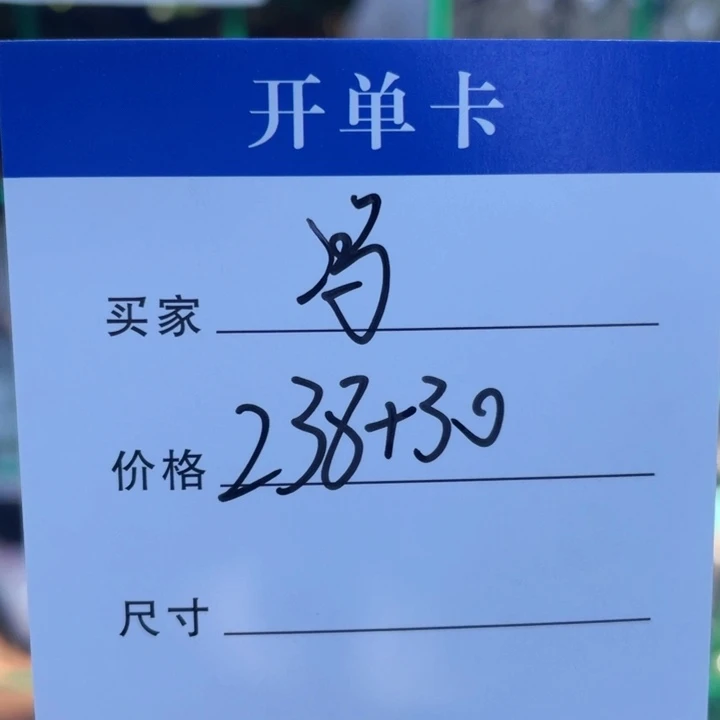 开单卡
买家
价格 238+30
尺寸